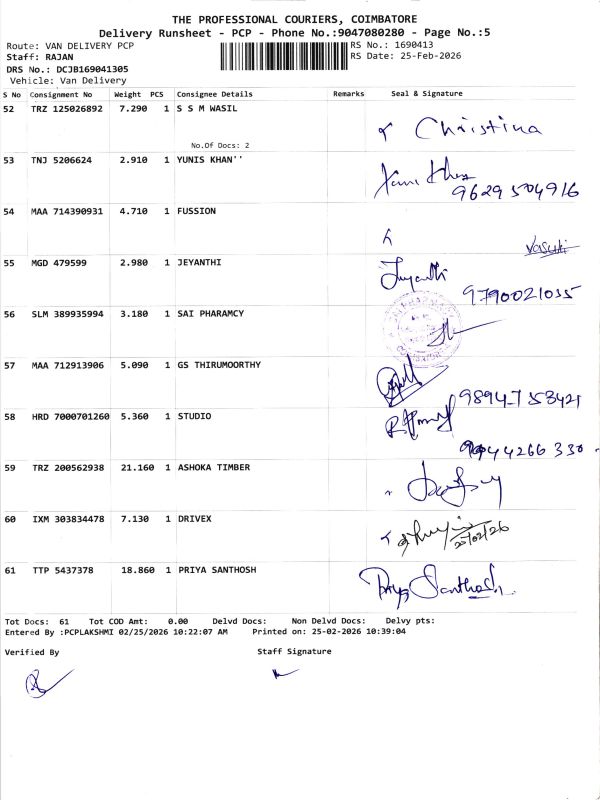 THE PROFESSIONAL COURIERS, COIMBATORE
Delivery Runsheet - PCP - Phone No.:9047080280 - Page No.:5
Route: VAN DELIVERY PCP RS No.: 1690413
Staff: RAJAN RS Date: 25-Feb-2026
DRS No.: DCJB169041305
Vehicle: Van Delivery
S No Consignment No Weight PCS Consignee Details Remarks Seal & Signature
52 TRZ 125026892 7.290 1 S S M WASIL
Christina
No.Of Docs: 2
53 TNJ 5206624 2.910 1 YUNIS KHAN''
9629504916
54 MAA 714390931 4.710 1 FUSSION
Vasuki
55 MGD 479599 2.980 1 JEYANTHI
Jeyanthi
9790021035
56 SLM 389935994 3.180 1 SAI PHARAMCY
57 MAA 712913906 5.090 1 GS THIRUMOORTHY
9894753421
58 HRD 7000701260 5.360 1 STUDIO
59 TRZ 200562938 21.160 1 ASHOKA TIMBER
60 IXM 303834478 7.130 1 DRIVEX
25/02/26
61 TTP 5437378 18.860 1 PRIYA SANTHOSH
Priya Santhosh
Tot Docs: 61 Tot COD Amt: 0.00 Delvd Docs: Non Delvd Docs: Delvy pts:
Entered By :PCPLAKSHMI 02/25/2026 10:22:07 AM Printed on: 25-02-2026 10:39:04
Verified By Staff Signature